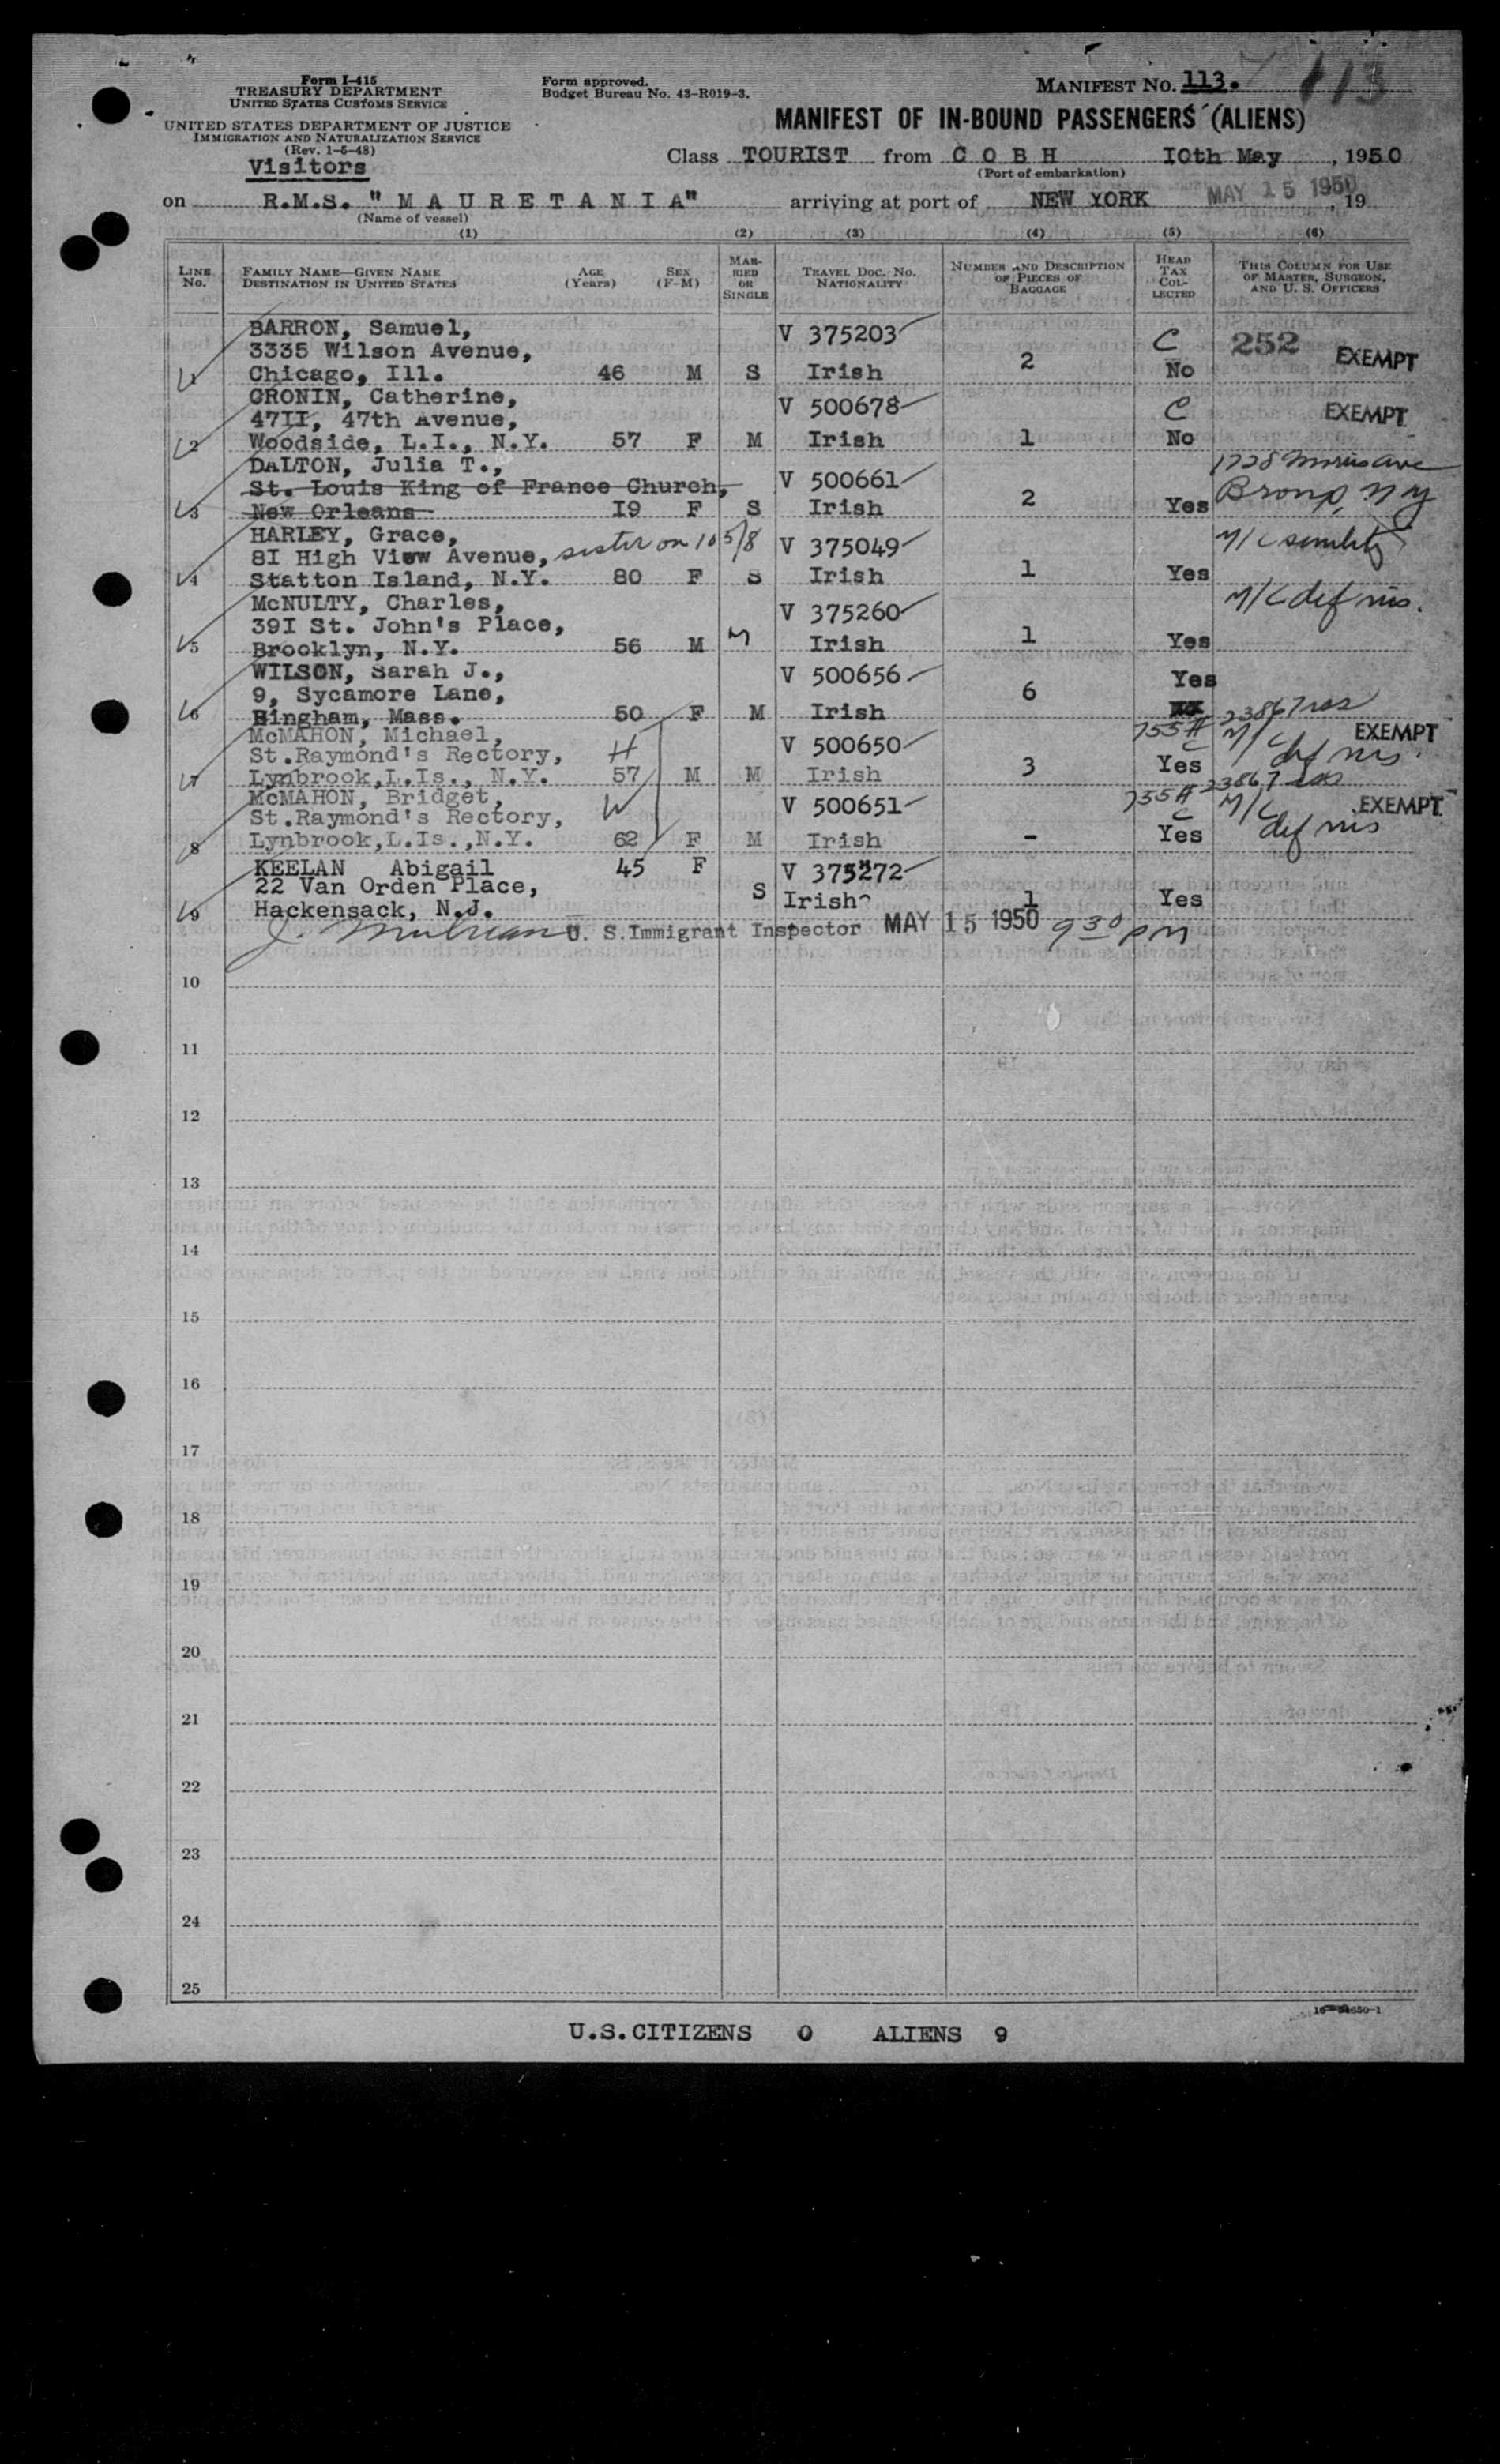 Form I-415
TREASURY DEPARTMENT
UNITED STATES CUSTOMS SERVICE
UNITED STATES DEPARTMENT OF JUSTICE
IMMIGRATION AND NATURALIZATION SERVICE
(Rev. 1-5-48)
Visitors
Form approved.
Budget Bureau No. 43-R019-3.
MANIFEST NO. 113. 113
MANIFEST OF IN-BOUND PASSENGERS (ALIENS)
Class TOURIST from C O B H I0th May, 1950
(Port of embarkation)
on R.M.S. "M A U R E T A N I A" arriving at port of NEW YORK MAY 15 1950, 19
(Name of vessel)
(1) (2) (3) (4) (5) (6)
LINE No. FAMILY NAME—GIVEN NAME DESTINATION IN UNITED STATES AGE (Years) SEX (F-M) MARRIED OR SINGLE TRAVEL DOC. NO. NATIONALITY NUMBER AND DESCRIPTION OF PIECES OF BAGGAGE HEAD TAX COLLECTED THIS COLUMN FOR USE OF MASTER, SURGEON, AND U. S. OFFICERS
BARRON, Samuel, V 375203 C 252 EXEMPT
3335 Wilson Avenue, 2
1 Chicago, Ill. 46 M S Irish No
CRONIN, Catherine, V 500678 C EXEMPT
47II, 47th Avenue,
2 Woodside, L.I., N.Y. 57 F M Irish 1 No
DALTON, Julia T., V 500661 1728 Morris ave
St. Louis King of France Church, 2 Bronx, N Y
3 New Orleans I9 F S Irish Yes
HARLEY, Grace, V 375049 M/C senility
8I High View Avenue, sister on 10 5/8 1
4 Statton Island, N.Y. 80 F S Irish Yes
McNULTY, Charles, V 375260 M/C def vis.
39I St. John's Place, 1
5 Brooklyn, N.Y. 56 M M Irish Yes
WILSON, Sarah J., V 500656 Yes
9, Sycamore Lane, 6
6 Hingham, Mass. 50 F M Irish
McMAHON, Michael, H V 500650 755 # C M/C def vis. EXEMPT
St.Raymond's Rectory, 3
7 Lynbrook,L.Is., N.Y. 57 M M Irish Yes
McMAHON, Bridget, W V 500651 755 # C M/C def vis EXEMPT
St.Raymond's Rectory, -
8 Lynbrook,L.Is.,N.Y. 62 F M Irish Yes
KEELAN Abigail 45 F V 375272
22 Van Orden Place, S Irish 1 Yes
9 Hackensack, N.J.
U. S.Immigrant Inspector MAY 15 1950 9 30 pm
10
11
12
13
14
15
16
17
18
19
20
21
22
23
24
25
U.S.CITIZENS 0 ALIENS 9